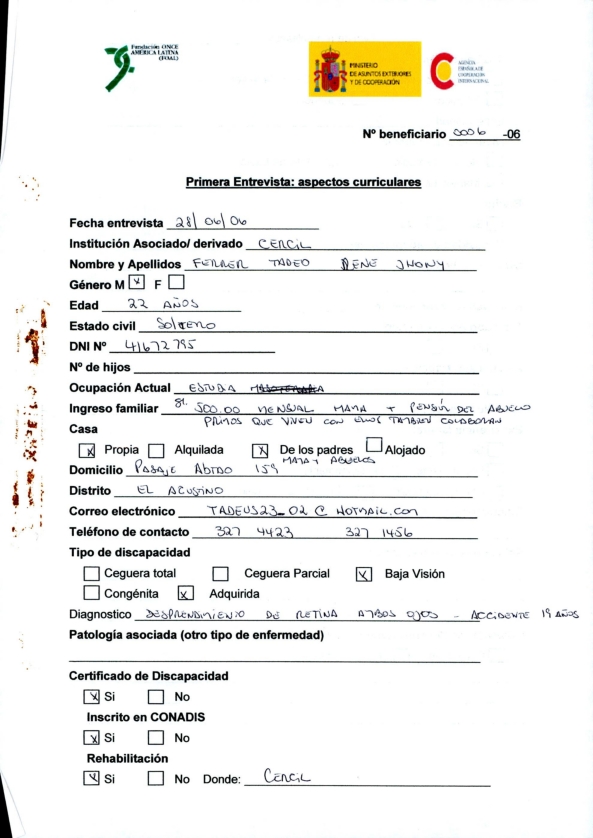 Fundación ONCE
AMÉRICA LATINA
(FOAL)
MINISTERIO
DE ASUNTOS EXTERIORES
Y DE COOPERACIÓN
AGENCIA
ESPAÑOLA DE
COOPERACIÓN
INTERNACIONAL
Nº beneficiario 0006 -06
Primera Entrevista: aspectos curriculares
Fecha entrevista 28/06/06
Institución Asociado/ derivado CERCIL
Nombre y Apellidos FERRER TADEO RENE JHONY
Género M x F
Edad 22 AÑOS
Estado civil SOLTERO
DNI Nº 41672795
Nº de hijos
Ocupación Actual ESTUDIA
Ingreso familiar S/. 500.00 MENSUAL MAMA + PENSIÓN DEL ABUELO
PRIMOS QUE VIVEN CON ELLOS TAMBIEN COLABORAN
Casa
x Propia Alquilada x De los padres Alojado
MAMA Y ABUELOS
Domicilio PASAJE ABTAO 159
Distrito EL AGUSTINO
Correo electrónico TADEUS23_02@HOTMAIL.COM
Teléfono de contacto 327 4423 327 1456
Tipo de discapacidad
Ceguera total Ceguera Parcial x Baja Visión
Congénita x Adquirida
Diagnostico DESPRENDIMIENTO DE RETINA AMBOS OJOS - ACCIDENTE 19 AÑOS
Patología asociada (otro tipo de enfermedad)
Certificado de Discapacidad
x Si No
Inscrito en CONADIS
x Si No
Rehabilitación
x Si No Donde: CERCIL